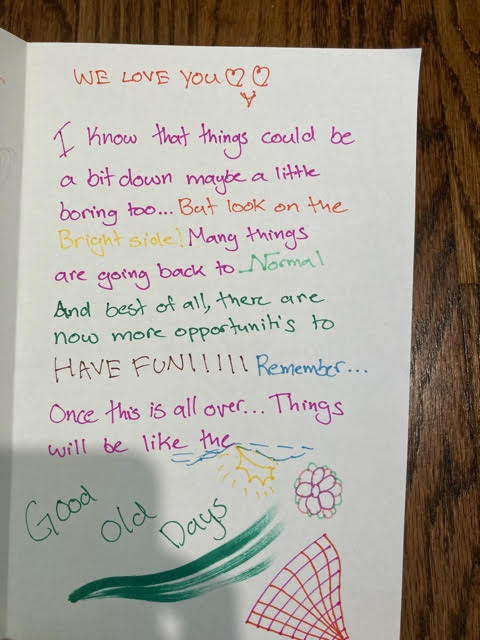 WE LOVE YOU
I know that things could be
a bit down maybe a little
boring too... But look on the
Bright side! Many things
are going back to Normal
And best of all, there are
now more opportunitis to
HAVE FUN!!!!! Remember...
Once this is all over... Things
will be like the
Good Old Days